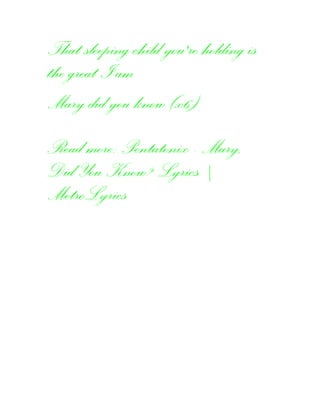 That sleeping child you're holding is
the great I am
Mary did you know (x6)
Read more: Pentatonix - Mary,
Did You Know? Lyrics |
MetroLyrics